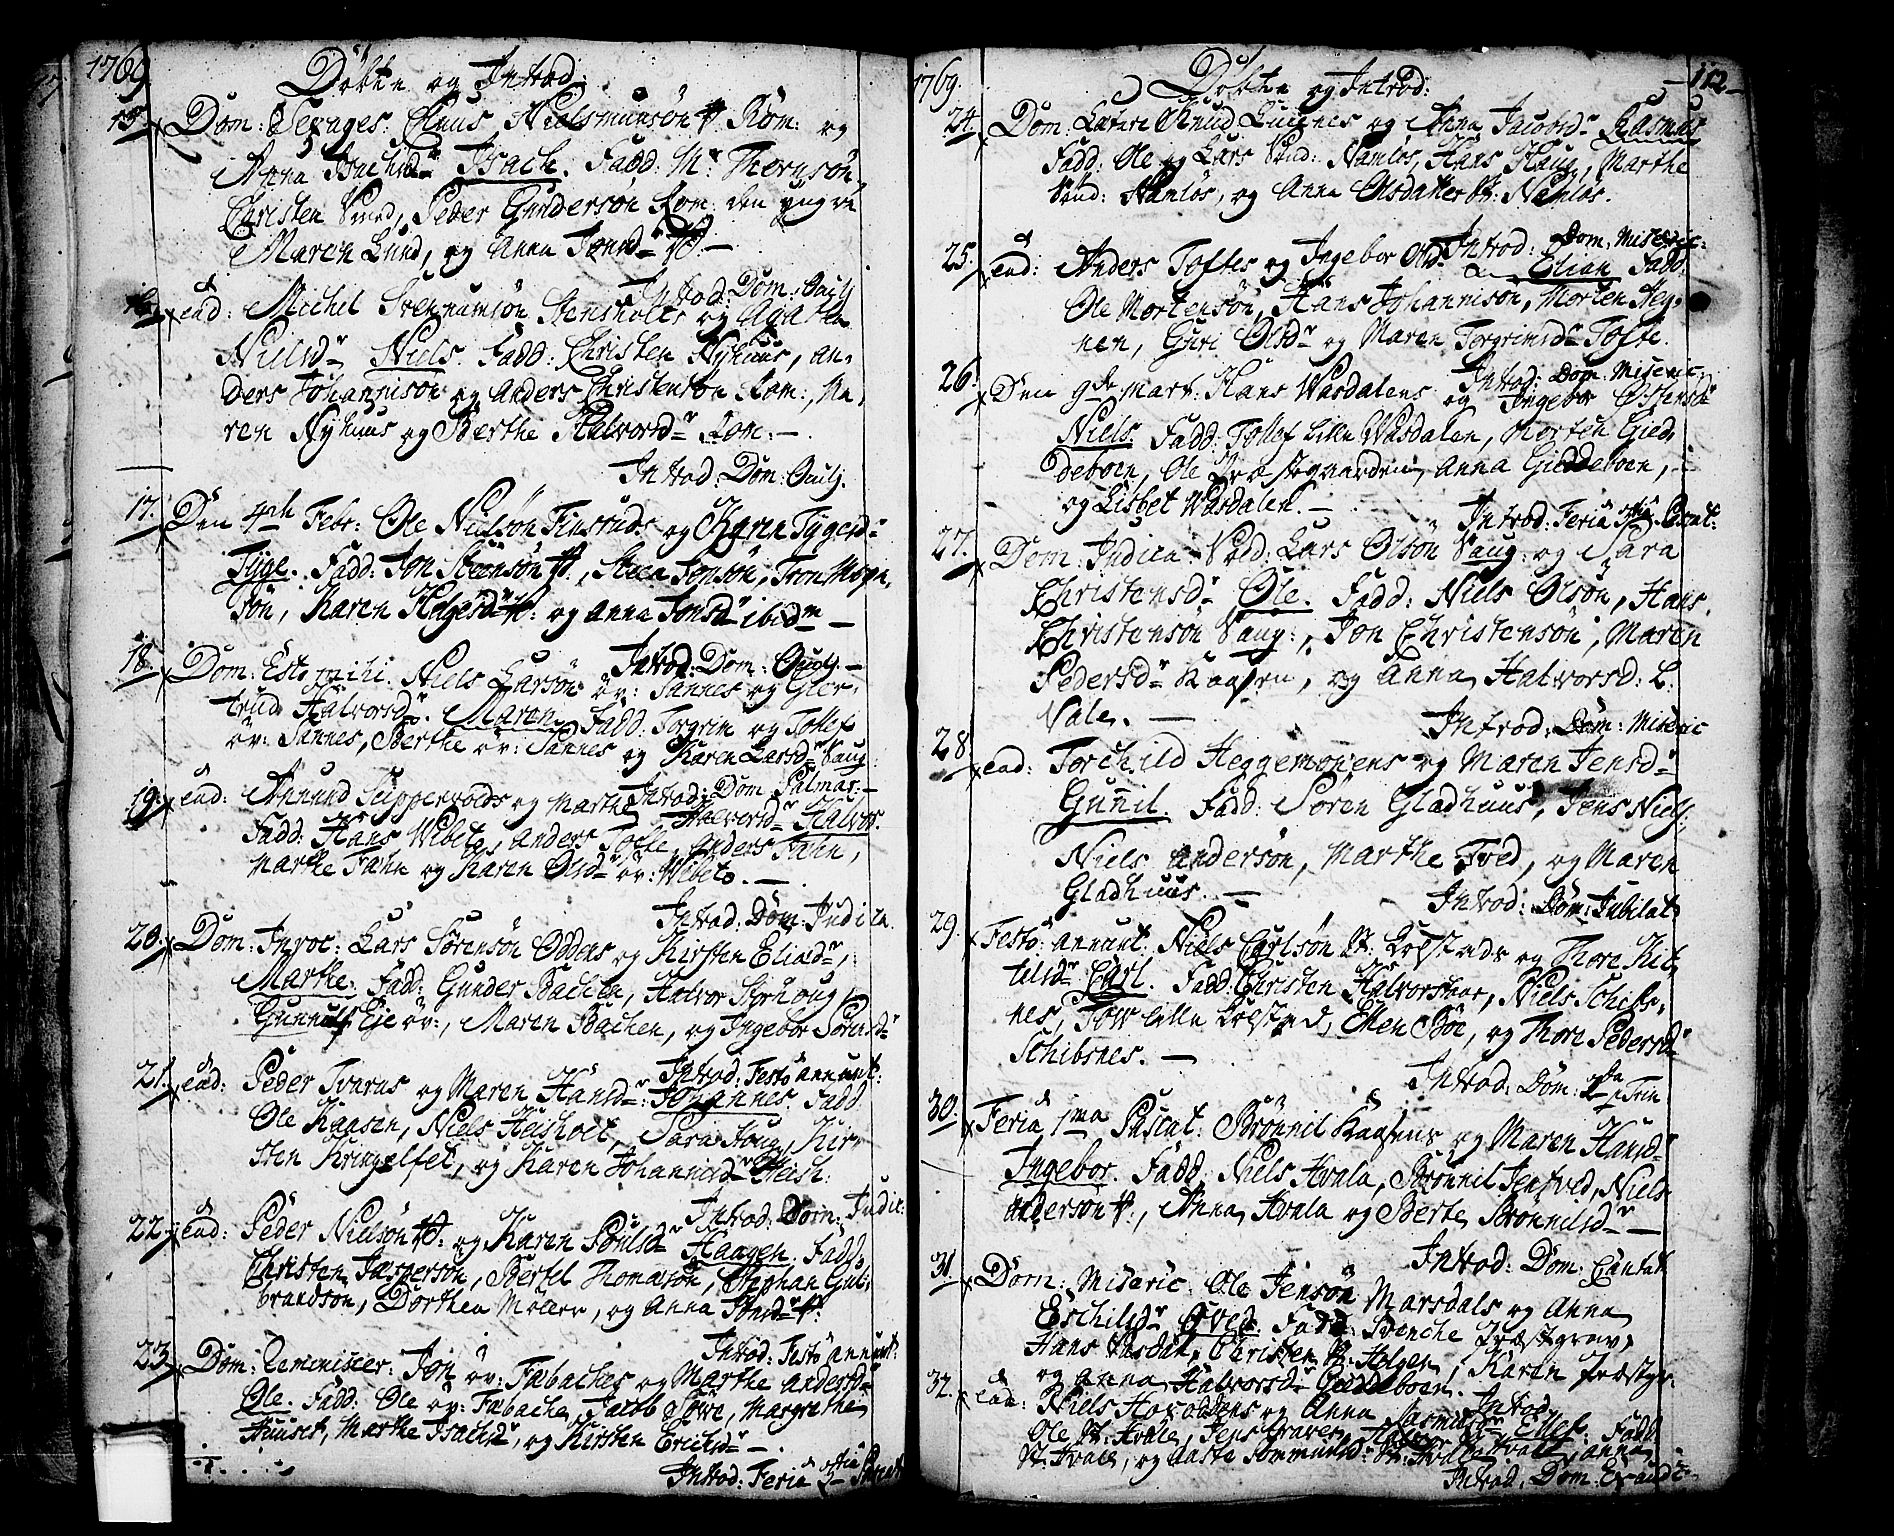 1769
Döbte og Introd:
15. Dom: Sexages. Claus Nielsmunsön Rom: og
Anna Isachsdr Isach. Fadd: Mr Thernsön,
Christen Smed, Peder Gundersön Rom: den yngre
Maren Lund, og Anna Jonsd
Introd: Dom: Oculj
ead: Michel Stensholts og Agathe
Nielsdr Niels. Fadd: Christen Nyhuus, An-
ders Johannisön og Anders Christensön Rom:, Ma-
ren Nyhuus og Berthe Halvorsdr Rom: —
Introd: Dom: Oculj.
17. Den 4de Febr: Ole Nielsön Finsruds og Karen Tygesdr
Tyge. Fadd: Jon Steensön, Steen Jonsön, Tron Mogn-
sön, Karen Helgesdr og Anna Jonsdr ibidm —
Introd: Dom: Oculj. —
18. Dom: Estomihi. Niels Larsön öv: Sannes og Gier-
trud Halvorsdr. Maren Fadd: Torgrim og Tollef
öv: Sannes, Berthe öv: Sannes og Karen Larsdr Saug:
Introd: Dom Palmar: —
19. ead: Annund Suppervolds og Marthe Halvorsdr Halvor.
Fadd: Hans Wibeto, Anders Tofte, Anders Fahn,
Marthe Fahn og Karen Olsdr öv: Wibeto. —
Introd: Dom: Judica.
20. Dom: Invoc: Lars Sörensön Oddens og Kirsten Eliædr,
Marthe. Fadd: Gunder Bachen, Halvor Skruoug,
Gunnulf Eje öv:, Maren Bachen, og Ingebor Sörensdr
Introd: Festo annunt:
21. ead: Peder Tvaras og Maren Hansdr: Johannes. Fadd
Ole Kaasen, Niels Heisholt, Sara Houg, Kir-
sten Kringelfet, og Karen Johannisdr Heish:
Introd: Dom: Judic:
22. ead: Peder Nielsön og Karen Poulsdr Haagen. Fadd:
Christen Jæspersön, Bertel Thomasön, Stephan Gul-
brandsön, Dorthea Möller, og Anna Jonsdr
Introd: Festo annunt:
23. Dom: Reminiscer: Jon öv: Fæbaches og Marthe Andersdr
Ole. Fadd: Ole öv: Fæbache, Jacob Töwe, Margrethe
Huuset, Marthe Isachsdr, og Kirsten Erichsdr —.
Introd: Feria 3tia Pascat
1769.
Döbte og Introd:
112
24. Dom: Lætare Knud Lunnes og Anna Jacobsdr Rasmus
Fadd: Ole og Lars Namlos, Hans Haug, Marthe
Namlös, og Anna Olsdatter Namlös.
Introd: Dom: Miseric:
25. ead: Anders Toftes og Ingebor Olsdr Elian Fadd:
Ole Mortensön, Hans Johannisön, Morten Hey-
nen, Guri Olsdr og Maren Torgrimsdr Tofte.
Introd: Dom: Miseric:
26. Den 9de Mart: Hans Wasdalens og Ingebor Östensdr
Niels. Fadd: Tollef Lille Wasdalen, Morten Gied-
deboen, Ole Præstgaarden, Anna Gieddeboen,
og Lisbet Wasdalen. —
Introd: Feria 3tia Pascat:
27. Dom. Judica Lars Olsön Saug: og Sara
Christensdr Ole. Fadd: Niels Olsön, Hans
Christensön Saug:, Jon Christensön, Maren
Pedersdr Kaasen, og Anna Halvorsd: L:
Vale. —
Introd: Dom: Miseric
28 ead: Torchild Heggemoens og Maren Jensdr
Gunil. Fadd: Sören Gladhuus, Jens Niels:
Niels Andersön, Marthe Tved, og Maren
Gladhuus. —
Introd: Dom: Jubilat
29. Festo annunt. Niels Carlsön og Thore Kit-
tilsdr Carl. Fadd: Christen Halvorsnæs, Niels Schibs-
nes, Tow Lille Kolstad, Ellen Böe, og Thore Pedersdr
Schibsnes. —
Introd: Dom: 2da p Trin
30. Feria 1ma Pascat: Brönnil Kaasens og Maren Hansdr
Ingebor. Fadd. Niels Hvala, Brönnil Jentved, Niels
Andersön, Anna Hvala og Berte Brönnilsdr —
Introd: Dom: Cantat
31 Dom: Miseric. Ole Jensön Marsdals og Anna
Eschilsdr Öved. Fadd: Svenche Præstgrav,
Hans Vasdal, Christen Holgen, Karen Præstgr:
og Anna Halvorsdr Gieddeboen.
Introd:
32. ead: Niels Hovoddens og Anna Rasmusdr Ellef. Fadd
Ole Hvale, Jens Graver,
Hvale, og Aaste Ammunds:
Introd. Dom: Exaudi: